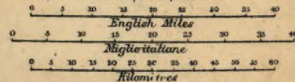 0 5 10 15 20 25 30 35 40
English Miles
0 5 10 15 20 25 30 35 40
Miglie italiane
0 5 10 15 20 25 30 35 40 45 50 55 60
Kilomitres